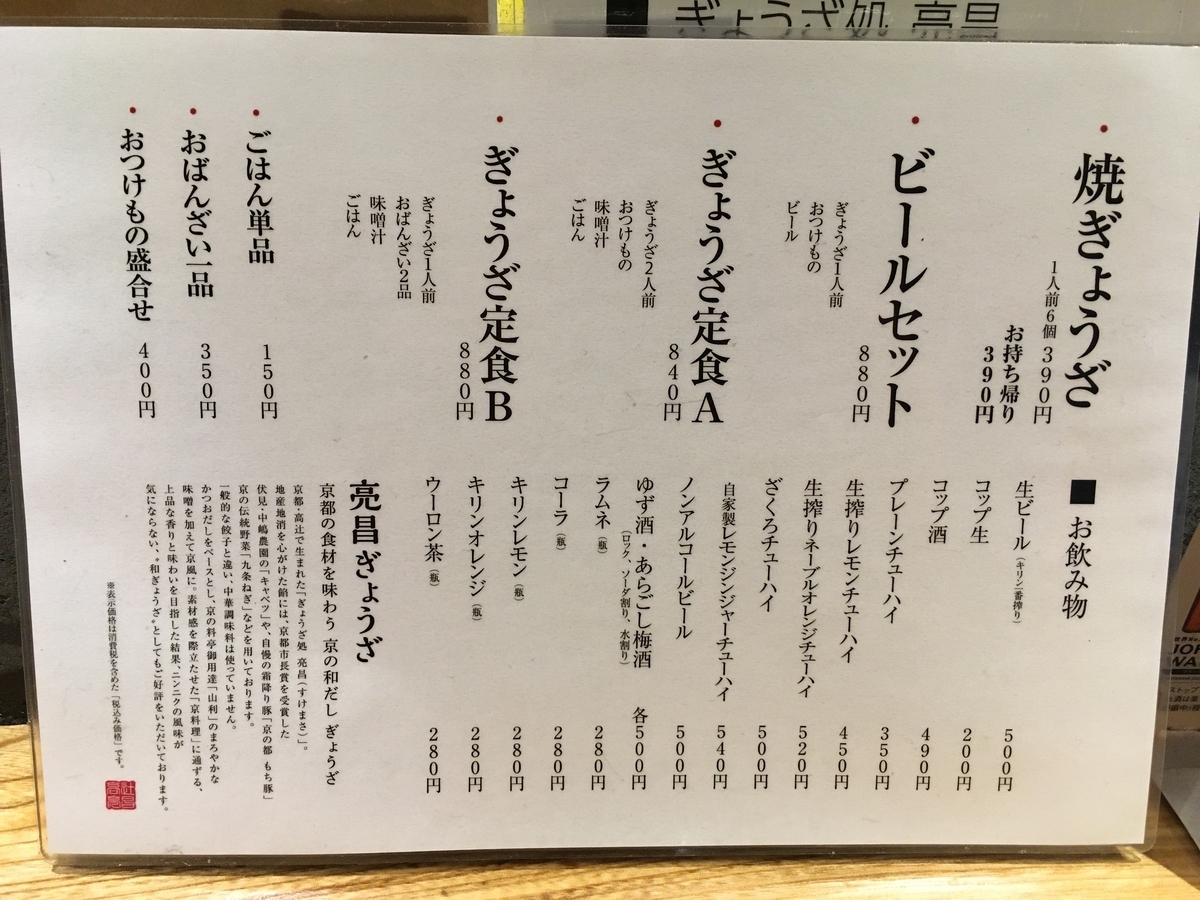 ぎょうざ処 亮昌
焼ぎょうざ
1人前6個 390円
お持ち帰り
390円
ビールセット
ぎょうざ1人前
おつけもの
ビール
880円
ぎょうざ定食A
ぎょうざ2人前
おつけもの
味噌汁
ごはん
840円
ぎょうざ定食B
ぎょうざ1人前
おばんざい2品
味噌汁
ごはん
880円
ごはん単品 150円
おばんざい一品 350円
おつけもの盛合せ 400円
■お飲み物
生ビール(キリン一番搾り) 500円
コップ生 200円
コップ酒 490円
プレーンチューハイ 350円
生搾りレモンチューハイ 450円
生搾りネーブルオレンジチューハイ 520円
ざくろチューハイ 500円
自家製レモンジンジャーチューハイ 540円
ノンアルコールビール 500円
ゆず酒・あらごし梅酒 各500円
(ロック、ソーダ割り、水割り)
ラムネ(瓶) 280円
コーラ(瓶) 280円
キリンレモン(瓶) 280円
キリンオレンジ(瓶) 280円
ウーロン茶(瓶) 280円
亮昌ぎょうざ
京都の食材を味わう 京の和だし ぎょうざ
京都・高辻で生まれた「ぎょうざ処 亮昌(すけまさ)」。
地産地消を心がけた餡には、京都市長賞を受賞した
伏見・中嶋農園の「キャベツ」や、自慢の霜降り豚「京の都 もち豚」
京の伝統野菜「九条ねぎ」などを用いております。
一般的な餃子と違い、中華調味料は使っていません。
かつおだしをベースとし、京の料亭御用達「山利」のまろやかな
味噌を加えて京風に。素材感を際立たせた「京料理」に通ずる、
上品な香りと味わいを目指した結果、ニンニクの風味が
気にならない、“和ぎょうざ”としてもご好評をいただいております。
※表示価格は消費税を含めた「税込み価格」です。